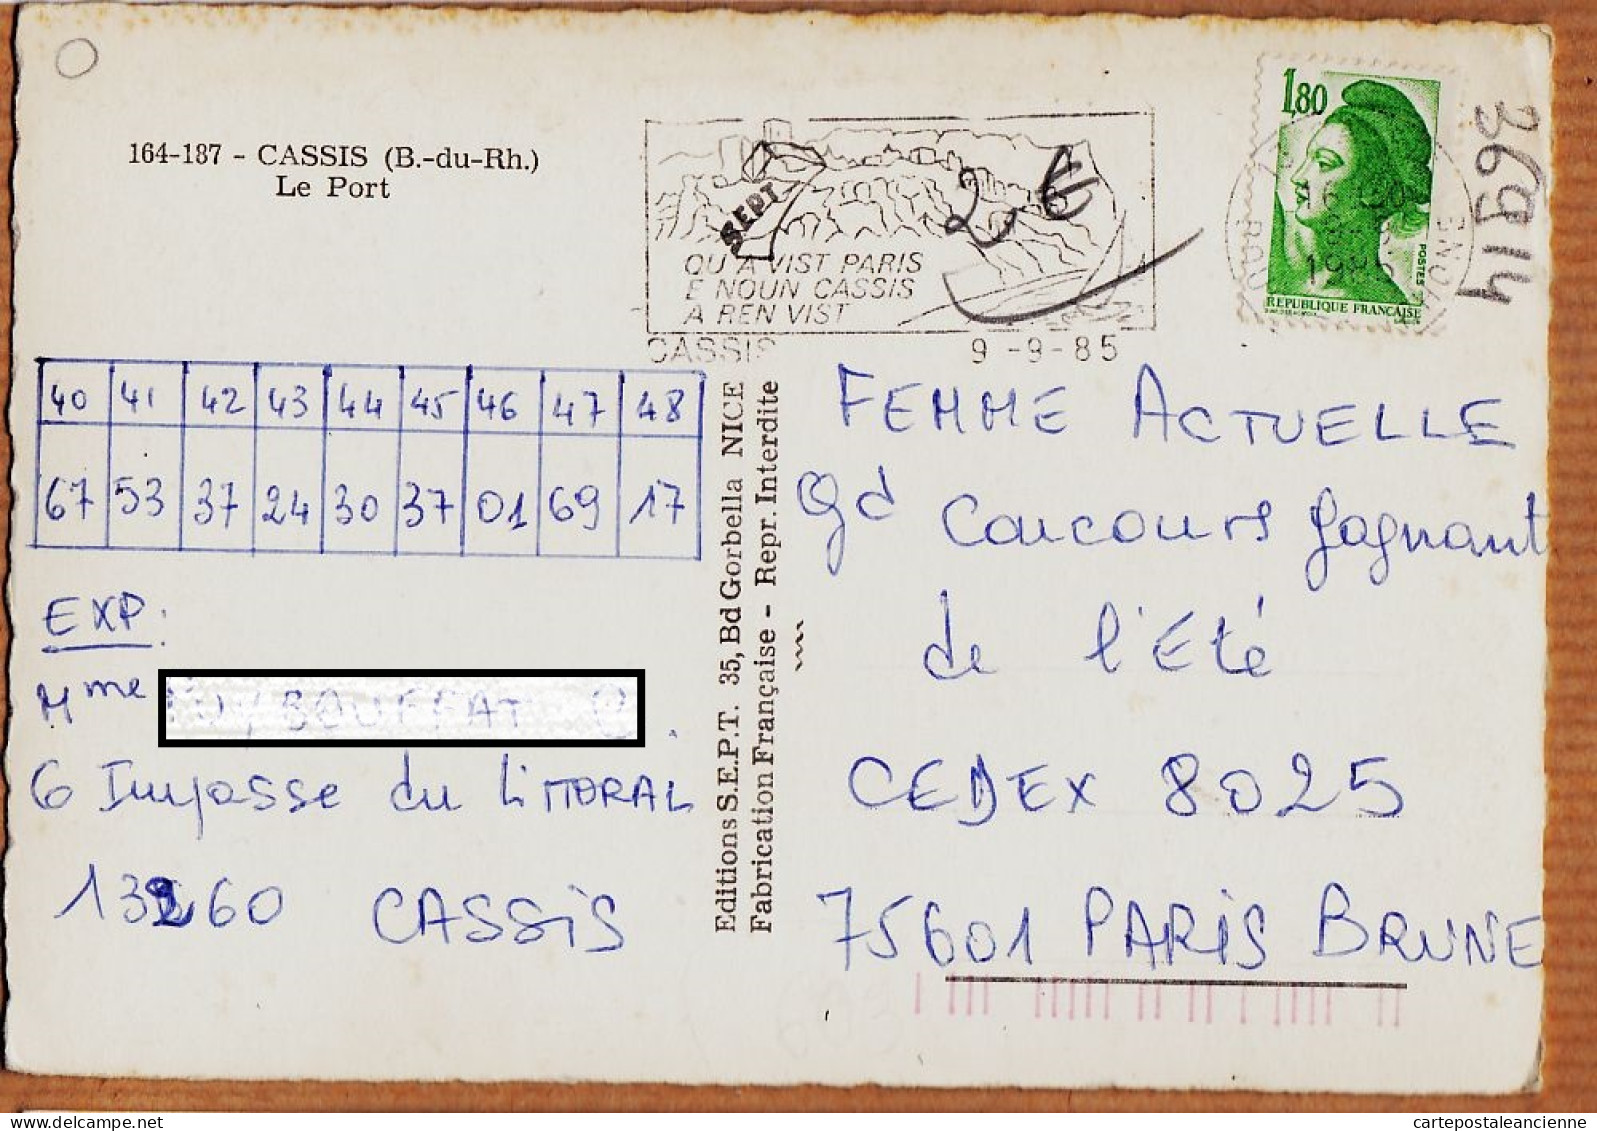 164-187 - CASSIS (B.-du-Rh.)
Le Port
SEPT
QU A VIST PARIS
E NOUN CASSIS
A REN VIST
CASSIS 9-9-85
2 €
1,80
POSTES
REPUBLIQUE FRANÇAISE
396
40 41 42 43 44 45 46 47 48
67 53 37 24 30 37 01 69 17
EXP:
Mme
6 Impasse du LITTORAL
13260 CASSIS
Editions S.E.P.T. 35, Bd Gorbella NICE
Fabrication Française - Repr. Interdite
FEMME ACTUELLE
Gd Concours gagnant
de l'Eté
CEDEX 8025
75601 PARIS BRUNE
cartepostaleancienne